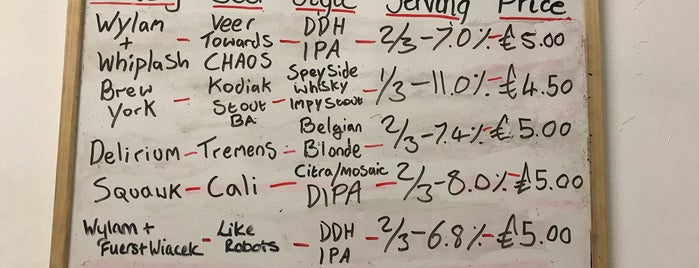 Beer Style Serving Price
Wylam + Whiplash - Veer Towards CHAOS - DDH IPA - 2/3 - 7.0% - £5.00
Brew York - Kodiak Stout BA - Speyside Whisky Imp Stout - 1/3 - 11.0% - £4.50
Delirium - Tremens - Belgian Blonde - 2/3 - 7.4% - £5.00
Squawk - Cali - Citra/Mosaic DIPA - 2/3 - 8.0% - £5.00
Wylam + Fuerst Wiacek - Like Robots - DDH IPA - 2/3 - 6.8% - £5.00